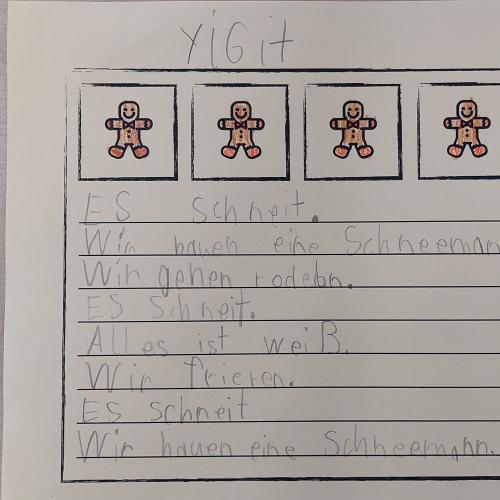 YiGit
ES schneit.
Wir bauen eine Schneeman
Wir gehen rodeln.
ES Schneit.
Alles ist weiß.
Wir frieren.
ES schneit
Wir bauen eine Schneemann.